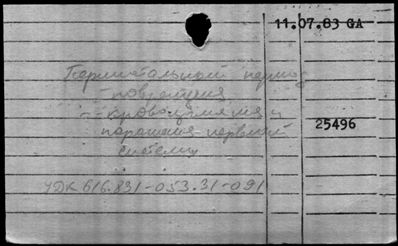 11.07.83 GA
Перинатальный период
- повреждения
- кровоизлияния
поражения нервной
системы
25496
УДК 616.831-053.31-091